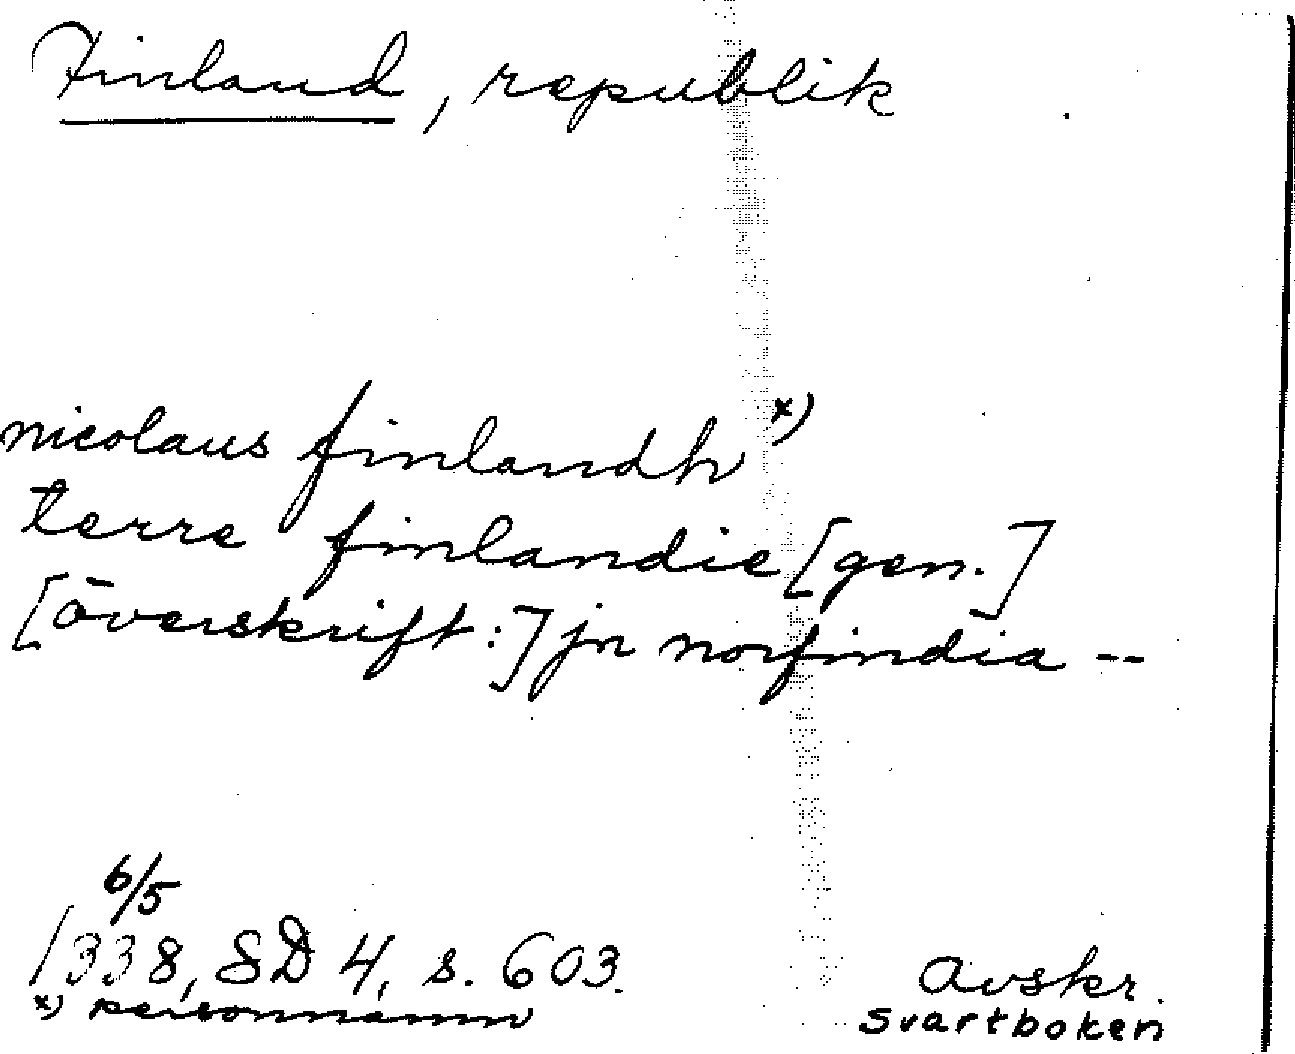 Finland, republik
nicolaus finlandh x)
terre finlandie [gen.]
[överskrift:] jn norfindia --
6/5
1338, SD 4, s. 603.
x) personnamn
Avskr.
Svartboken